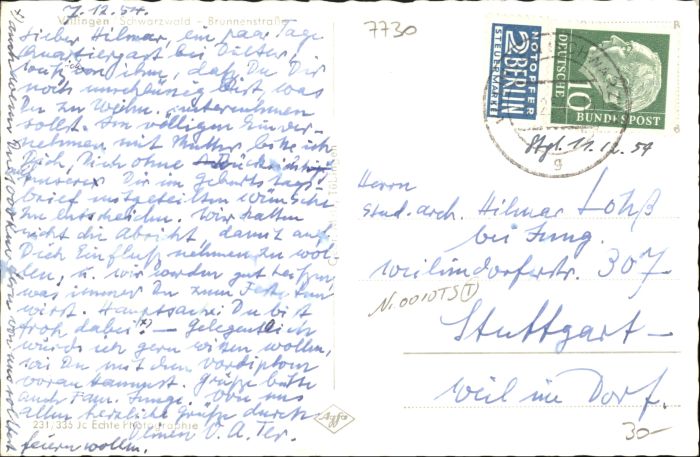 7.12.54.
Villingen Schwarzwald - Brunnenstraße
Lieber Hilmar, ein paar Tage
Quartiergast bei Dieter,
weiß ich von ihm, daß Du Dir
noch unschlüssig bist was
Du zu Weihn. unternehmen
sollst. Im völligen Einver-
nehmen mit Mutter bitte ich
Dich, Dich ohne
unserer Dir im Geburtstags-
brief mitgeteilten Wünsche
zu entscheiden. Wir hatten
nicht die Absicht damit auf
Dich Einfluß nehmen zu wol-
len, u. wir werden gut heißen,
was immer Du zum Fest tun
wirst. Hauptsache: Du bist
froh dabei! +) — Gelegentlich
würde ich gern wissen wollen,
wie Du mit dem Vordiplom
voran kommst. Grüße bitte
auch Fam. Jung. Von uns
allen herzliche Grüße durch
Deinen V. A. Ter.
+) auch wenn Du 1000 km fern von uns solltest
feiern wollen.
231/336 Jc Echte Photographie
Agfa
7730
NOTOPFER
2 BERLIN
STEUERMARKE
DEUTSCHE
BUNDESPOST
10
g
Stgt. 11.12.54
Herrn
Stud. arch. Hilmar Lohß
bei Jung.
Weilimdorferstr. 307
N. 0010TS T
Stuttgart —
Weil im Dorf.
30-